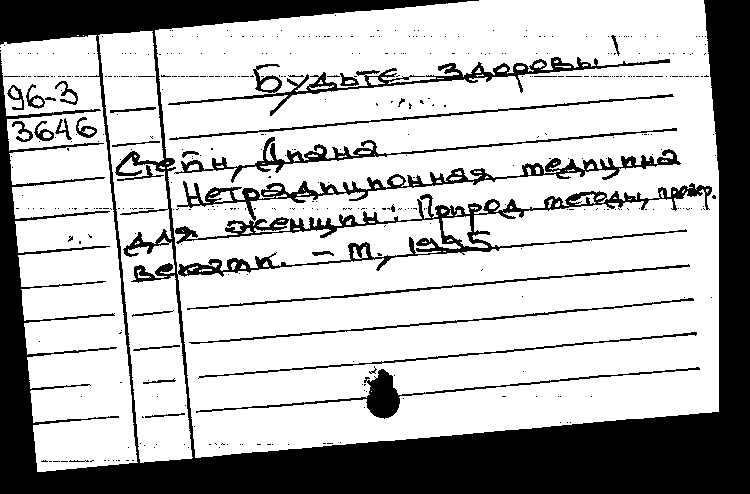 Будьте здоровы!
96-3
3646
Стейн, Диана
Нетрадиционная медицина
для женщин: Природ. методы, провер.
веками. - М., 1995.